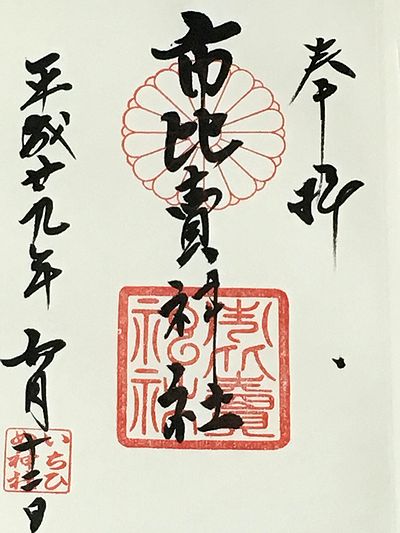 奉拝
市比賣神社
平成廿九年
七月十三日
いちひ
め神社